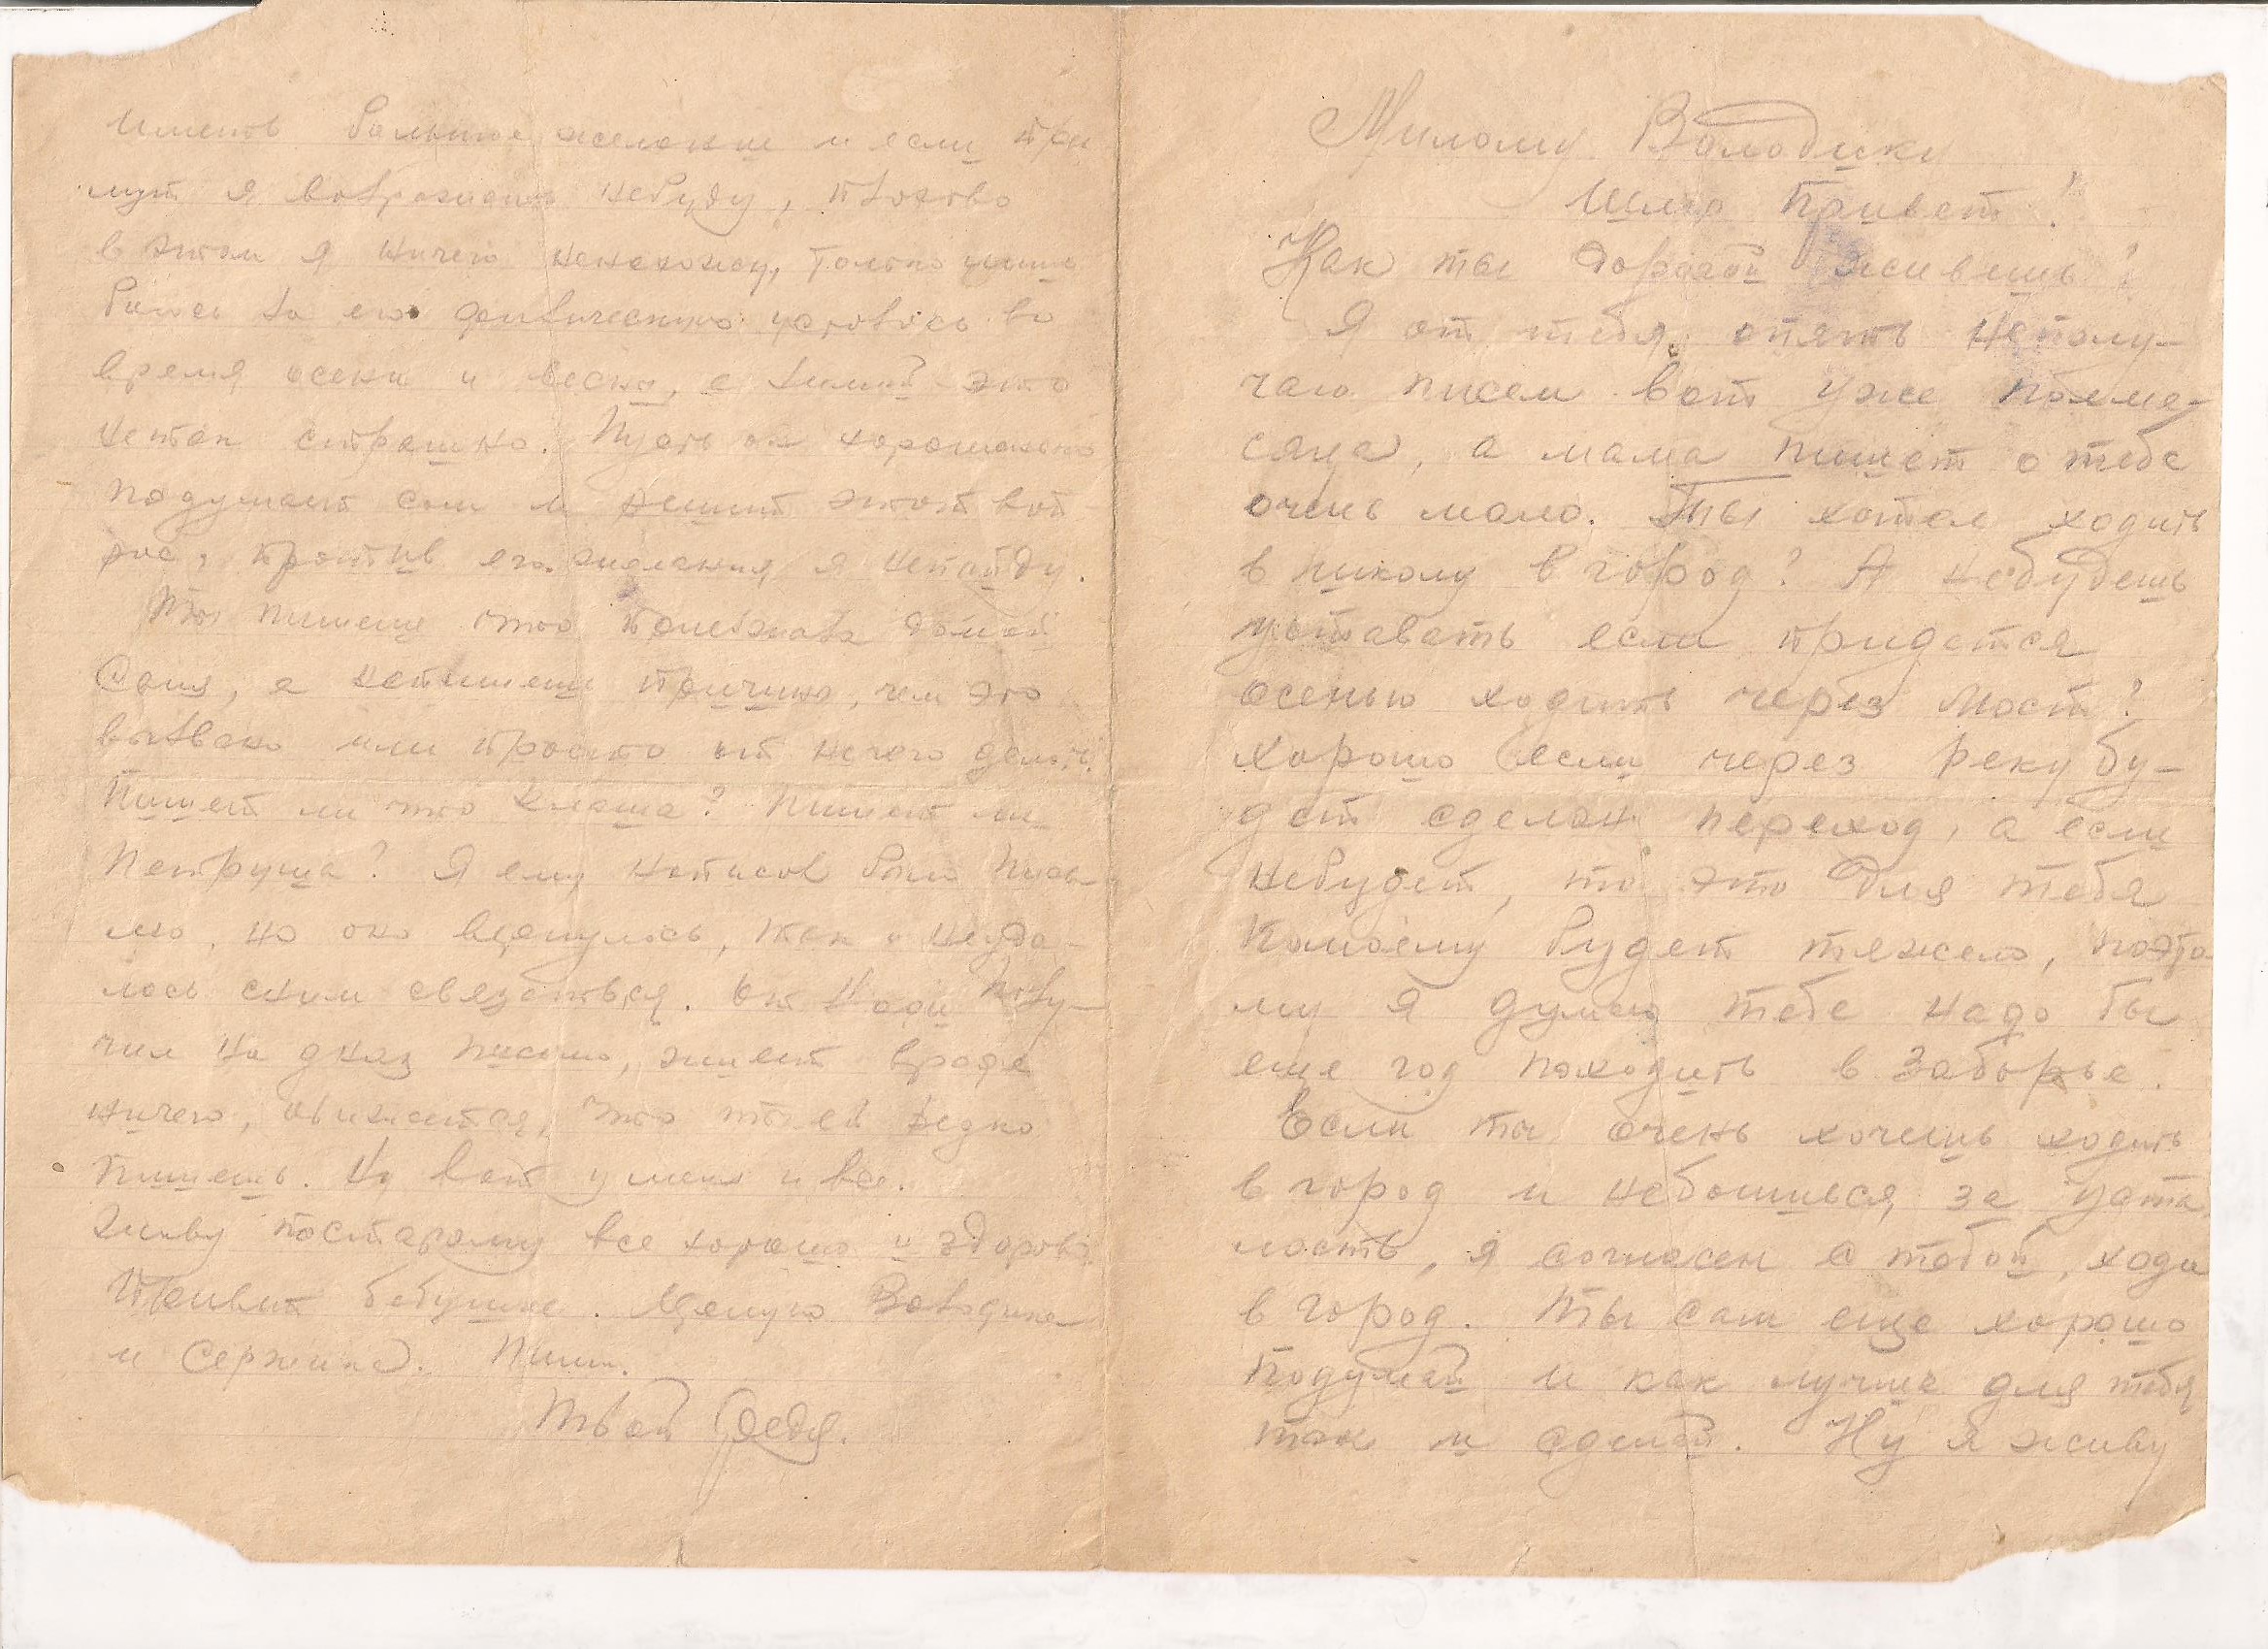 имеет большое желание и если при
мут я возражать небуду, плохово
в этом я ничего ненахожу, только
боюсь за его физическую усталось во
время осени и весны, а зимой это
нетак страшно. Пусть он хорошенько
подумает сам и решит этот воп
рос, против его желания я непойду.
Ты пишеш что приезжала домой
Соня, а непишеш причину, чем это
вызвано или просто от нечего делать.
Пишет ли что Клаша? Пишет ли
Петруша? Я ему написал было пись
мо, но оно вернулось, так и неуда-
лось сним связаться. От Нади полу-
чил на днях письмо, живет вроде
ничего, обижается, что ты ей редко
пишешь. Ну вот у меня и все.
Живу постарому все хорошо и здорово.
Привет бабушке. Целую Володика
и Сержика. Пиши.
Твой Федя.
Милому Володику
Шлю Привет!
Как ты дорогой живешь?
Я от тебя опять неполу-
чаю писем вот уже полме-
сяца, а мама пишет о тебе
очень мало. Ты хотел ходить
в школу в город? А небудешь
уставать если придется
осенью ходить через мост?
хорошо если через реку бу-
дет сделан переход, а если
небудет, то это для тебя
помоему будет тяжело, поэто
му я думаю тебе надо бы
еще год походить в Заборье.
Если ты очень хочешь ходить
в город и небоишься за уста
лость, я согласен с тобой, ходи
в город. Ты сам еще хорошо
подумай и как лучше для тебя
так и сделай. Ну я живу